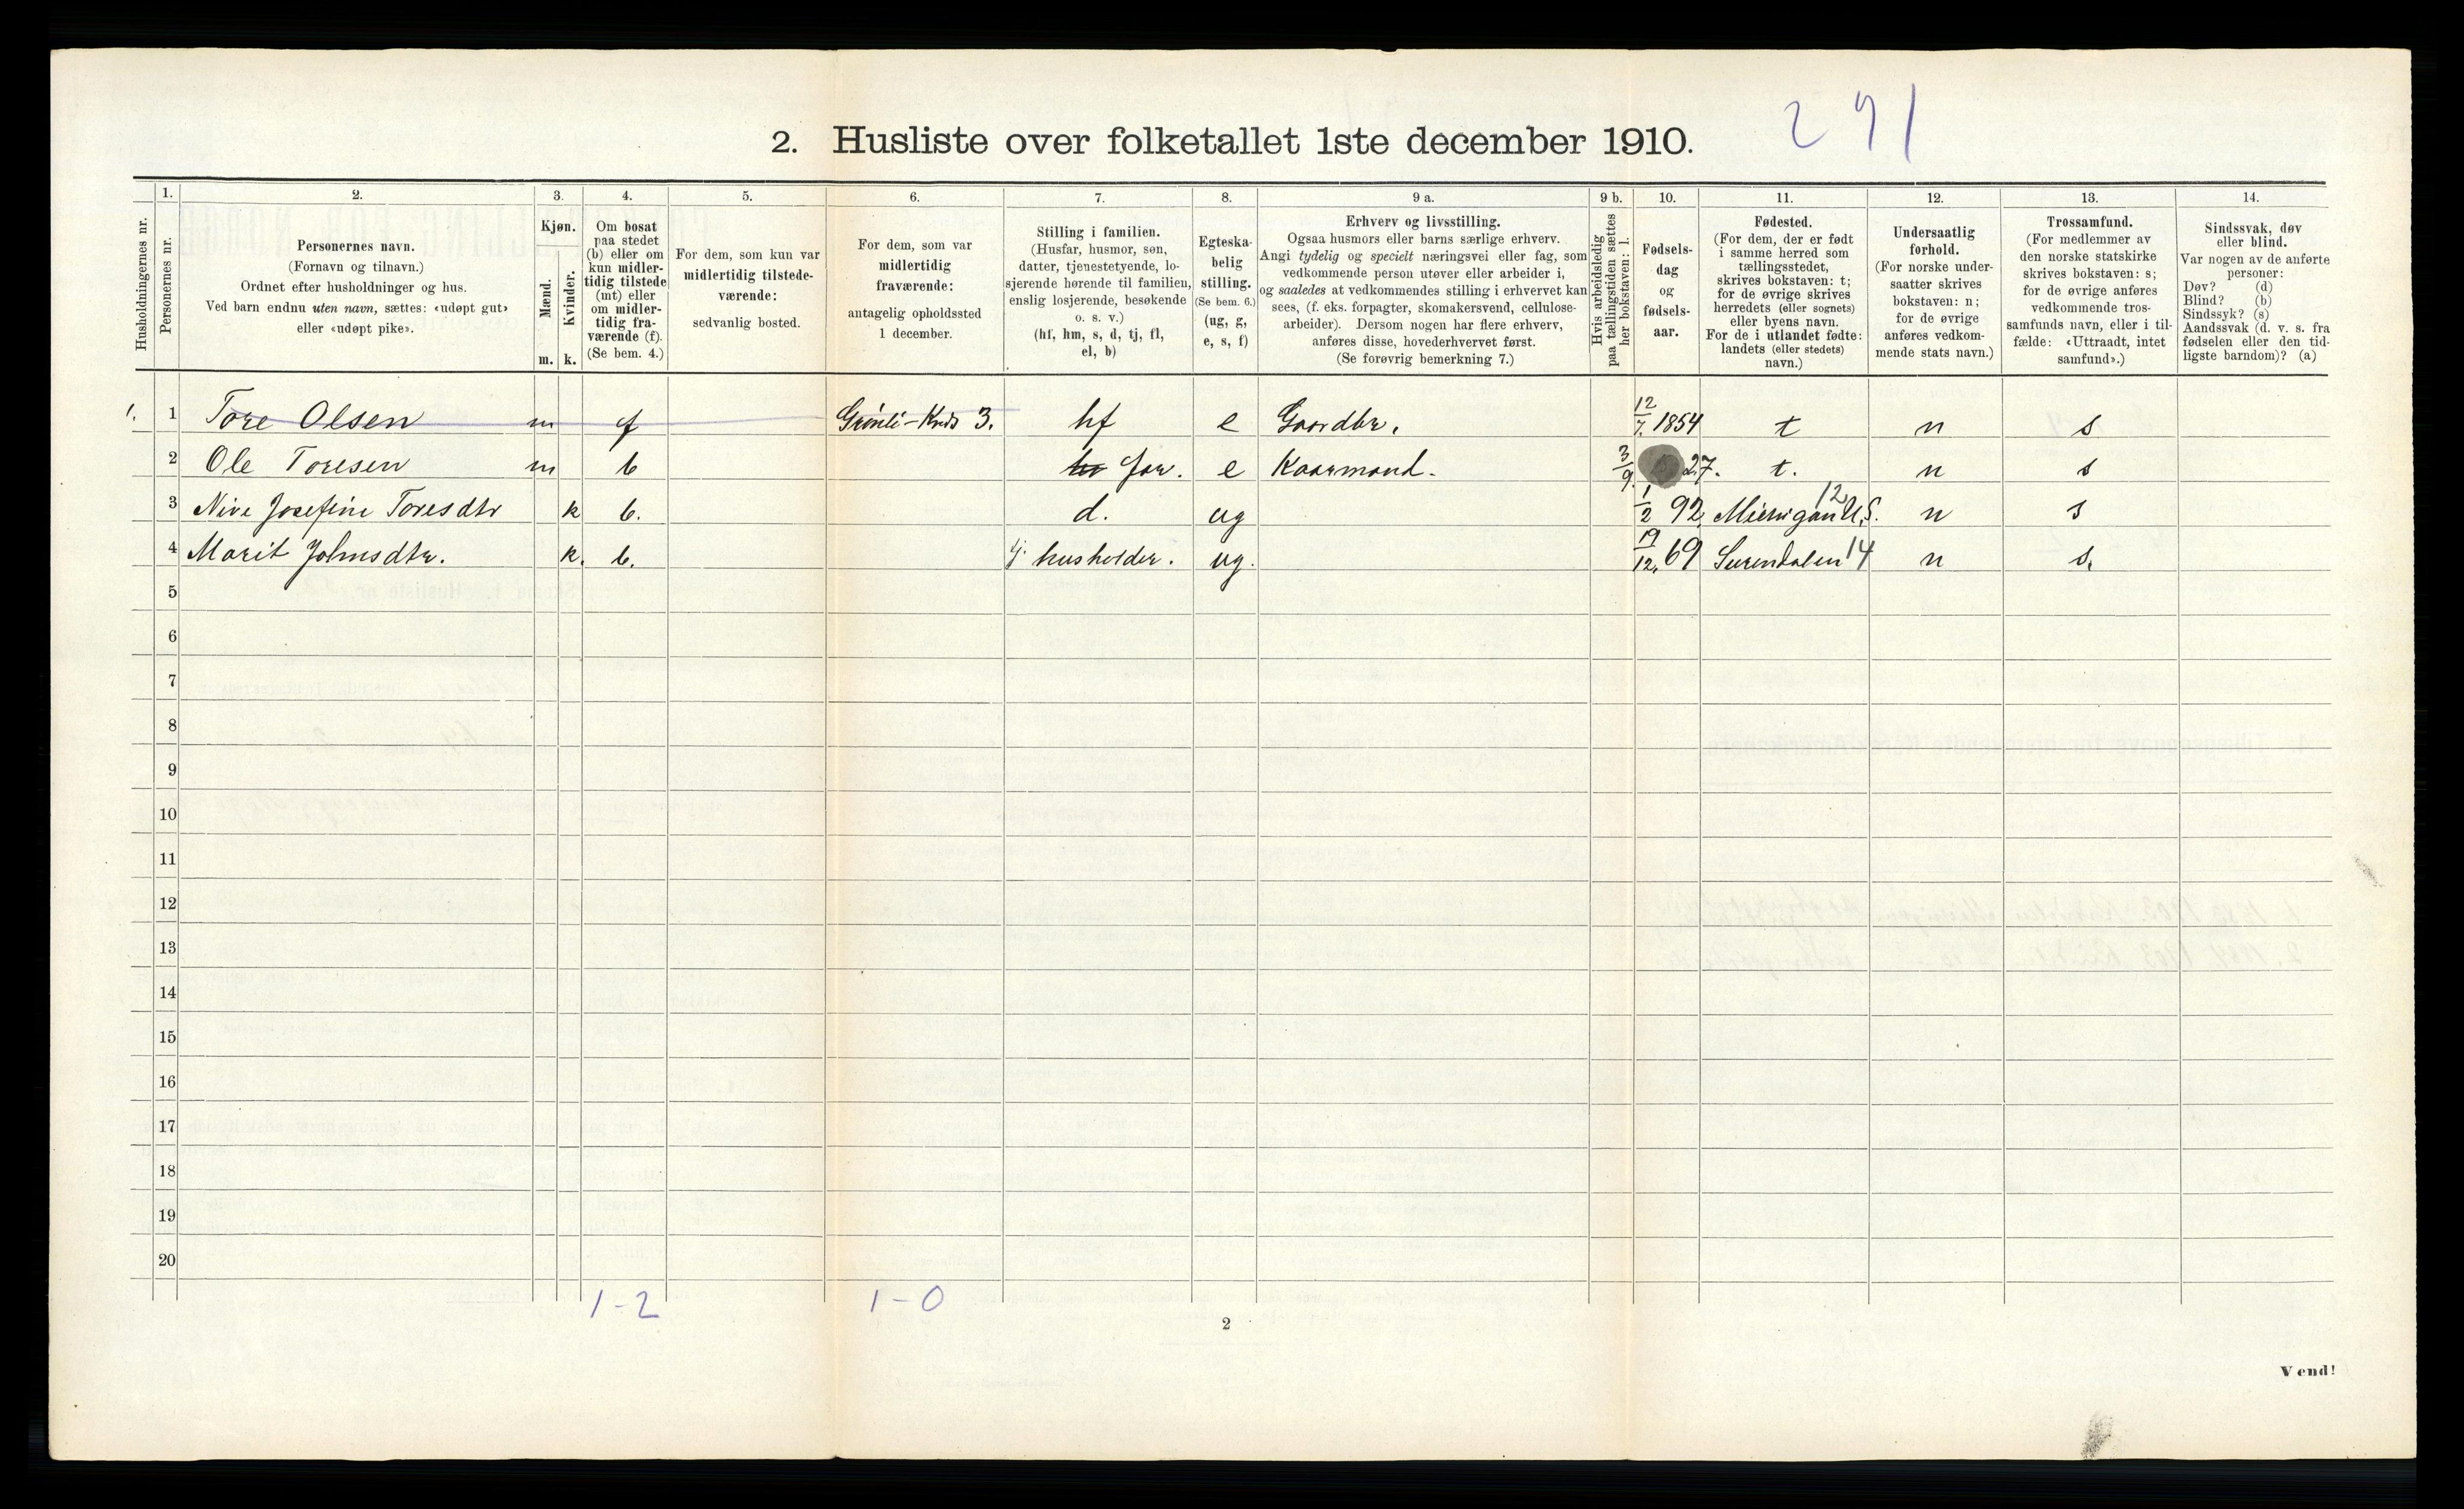 291
2. Husliste over folketallet 1ste december 1910.
Husholdningernes nr.
1. Personernes nr.
2. Personernes navn.
(Fornavn og tilnavn.)
Ordnet efter husholdninger og hus.
Ved barn endnu uten navn, sættes: «udøpt gut»
eller «udøpt pike».
3. Kjøn.
Mænd. m.
Kvinder. k.
4. Om bosat
paa stedet
(b) eller om
kun midler-
tidig tilstede
(mt) eller
om midler-
tidig fra-
værende (f).
(Se bem. 4.)
5. For dem, som kun var
midlertidig tilstede-
værende:
sedvanlig bosted.
6. For dem, som var
midlertidig
fraværende:
antagelig opholdssted
1 december.
7. Stilling i familien.
(Husfar, husmor, søn,
datter, tjenestetyende, lo-
sjerende hørende til familien,
enslig losjerende, besøkende
o. s. v.)
(hf, hm, s, d, tj, fl,
el, b)
8. Egteska-
belig
stilling.
(Se bem. 6.)
(ug, g,
e, s, f)
9 a. Erhverv og livsstilling.
Ogsaa husmors eller barns særlige erhverv.
Angi tydelig og specielt næringsvei eller fag, som
vedkommende person utøver eller arbeider i,
og saaledes at vedkommendes stilling i erhvervet kan
sees, (f. eks. forpagter, skomakersvend, cellulose-
arbeider). Dersom nogen har flere erhverv,
anføres disse, hovederhvervet først.
(Se forøvrig bemerkning 7.)
9 b. Hvis arbeidsledig
paa tællingstiden sættes
her bokstaven: l.
10. Fødsels-
dag
og
fødsels-
aar.
11. Fødested.
(For dem, der er født
i samme herred som
tællingsstedet,
skrives bokstaven: t;
for de øvrige skrives
herredets (eller sognets)
eller byens navn.
For de i utlandet fødte:
landets (eller stedets)
navn.)
12. Undersaatlig
forhold.
(For norske under-
saatter skrives
bokstaven: n;
for de øvrige
anføres vedkom-
mende stats navn.)
13. Trossamfund.
(For medlemmer av
den norske statskirke
skrives bokstaven: s;
for de øvrige anføres
vedkommende tros-
samfunds navn, eller i til-
fælde: «Uttraadt, intet
samfund».)
14. Sindssvak, døv
eller blind.
Var nogen av de anførte
personer:
Døv? (d)
Blind? (b)
Sindssyk? (s)
Aandssvak (d. v. s. fra
fødselen eller den tid-
ligste barndom)? (a)
1. 1 Tore Olsen m f Grönli - Kreds 3. hf e Gaardbr. 12/7. 1854 t n s
2 Ole Toresen m b far. e Kaarmand. 3/9. 27. t. n s
3 Nive Josefine Toresdtr k b. d. ug 1/2 92. Michigan U.S. 12 n s
4 Marit Johnsdtr. k. b. tj. husholder. ug. 19/12. 69 Surendalen 14 n s.
5
6
7
8
9
10
11
12
13
14
15
16
17
18
19
20
1 - 2 1 - 0
2
Vend!